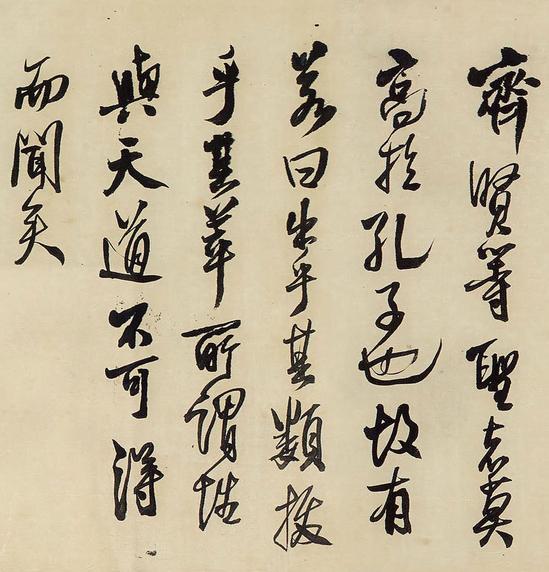 齊賢等聖者莫
高於孔子也故有
若曰出乎其類拔
乎其萃所謂性
與天道不可得
而聞矣